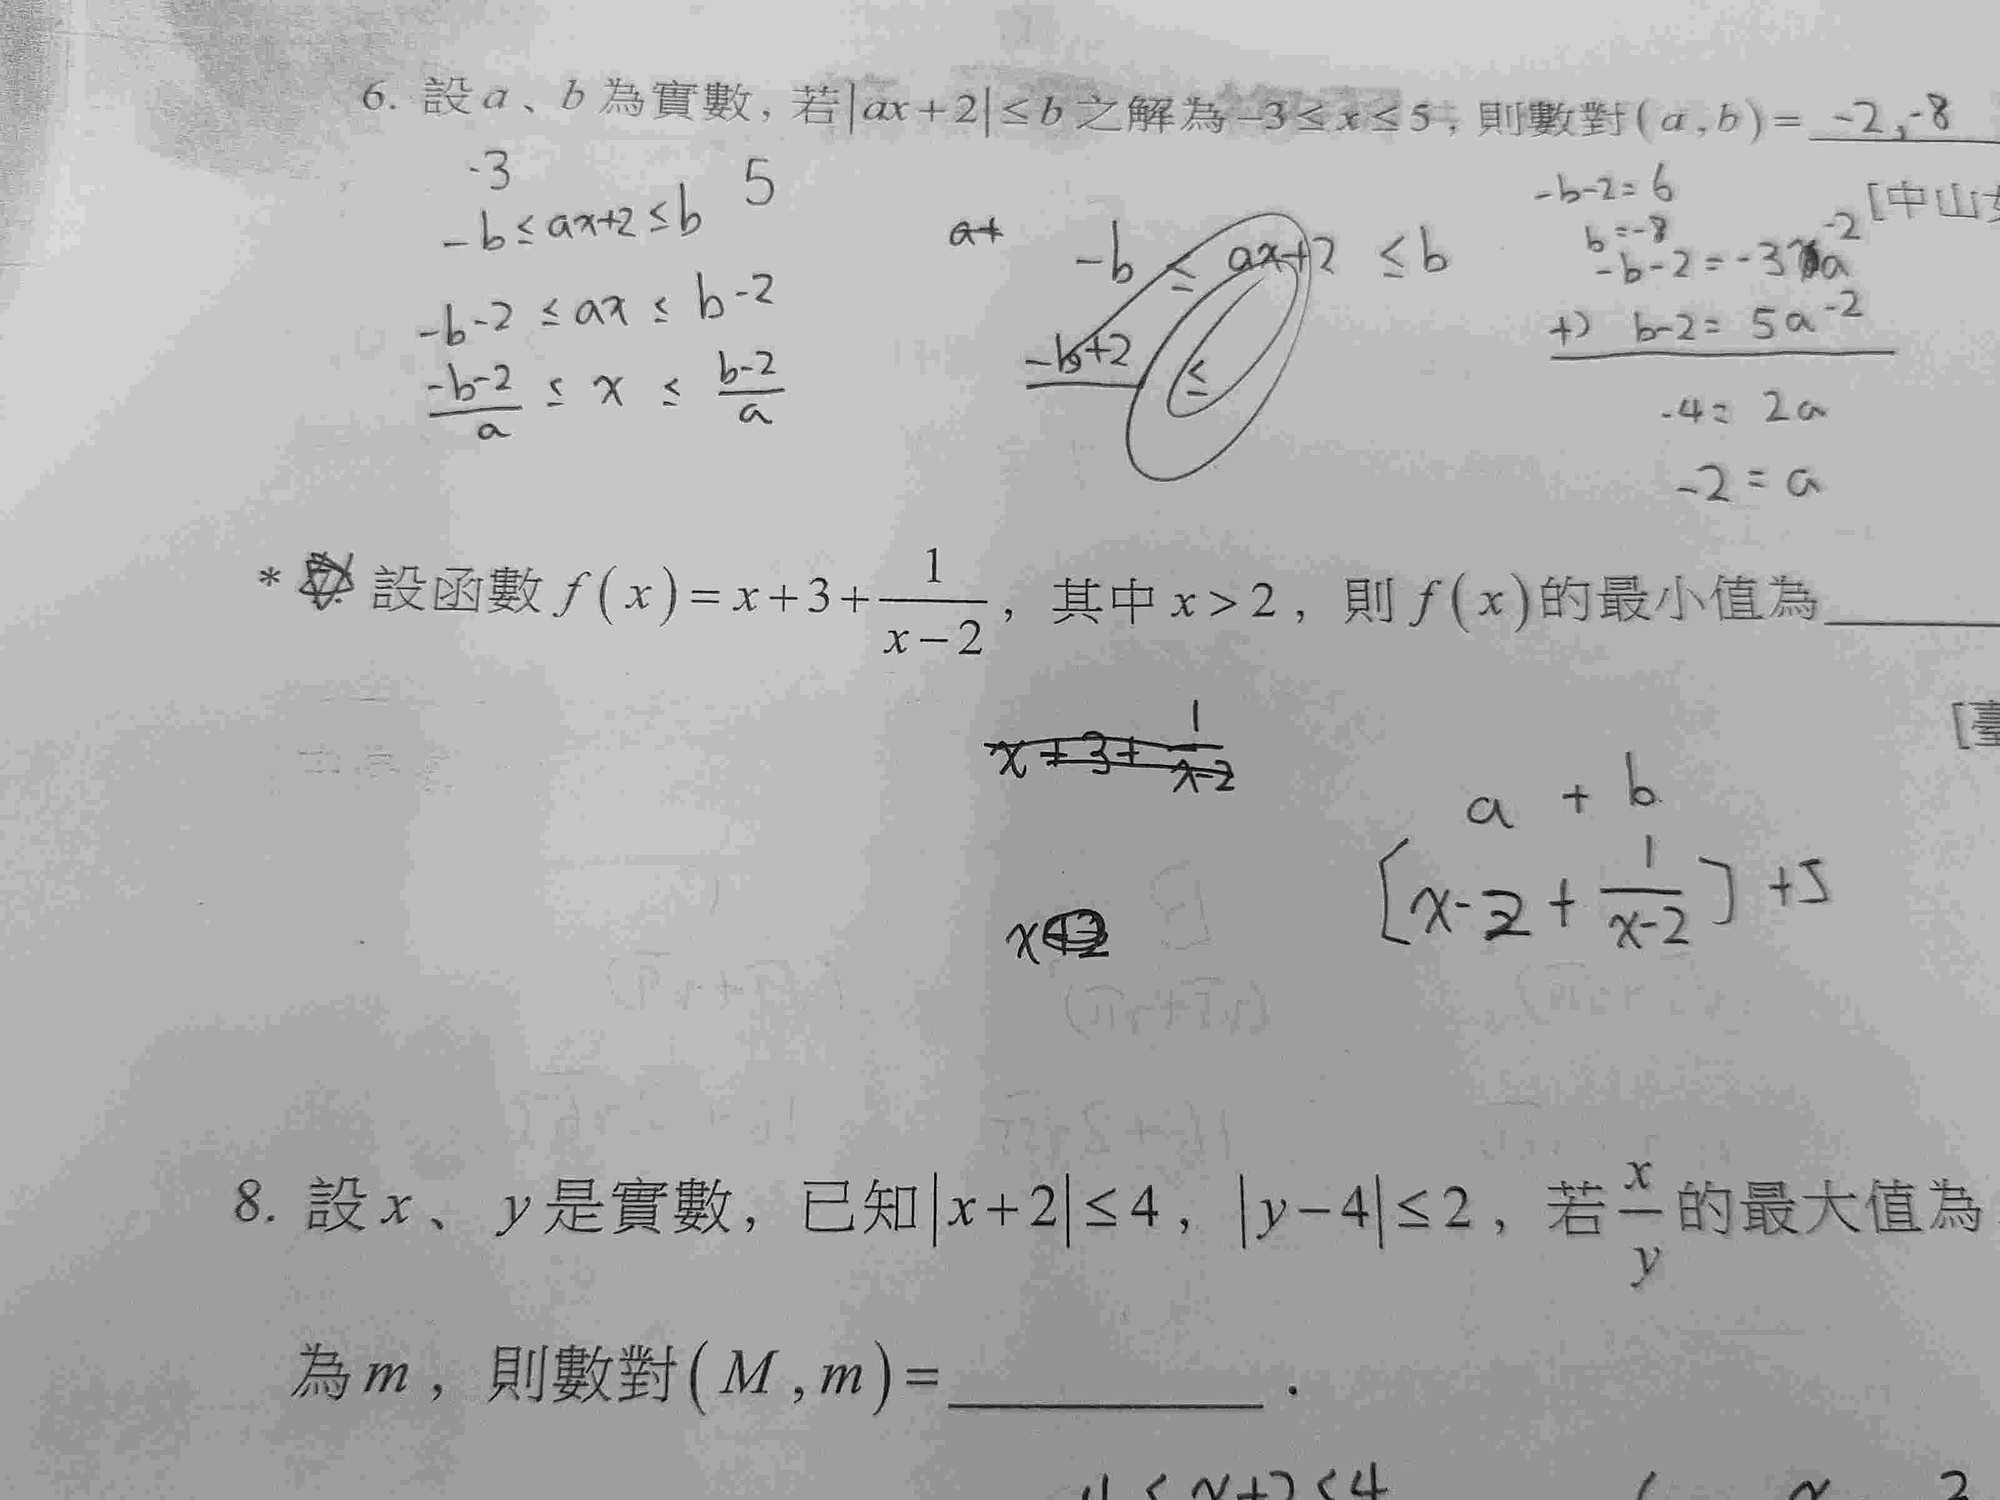 6. 設 a、b 為實數，若|ax+2|≤b 之解為 -3≤x≤5，則數對(a,b)= -2,-8
-3 5
-b≤ax+2≤b
-b-2≤ax≤b-2
\frac{-b-2}{a} ≤ x ≤ \frac{b-2}{a}
a+
-b ≤ ax+2 ≤b
-b+2 ≤
-b-2=6
b=-8
-b-2=-3a -2
+) b-2= 5a -2
-4= 2a
-2=a
[中山
* 設函數 f(x)=x+3+\frac{1}{x-2}，其中 x>2，則 f(x)的最小值為
[臺
x+3+\frac{1}{x-2}
x
a + b
[x-2+\frac{1}{x-2}]+5
8. 設 x、y 是實數，已知|x+2|≤4，|y-4|≤2，若\frac{x}{y}的最大值為
為 m，則數對(M,m)= .
≤x+2≤4